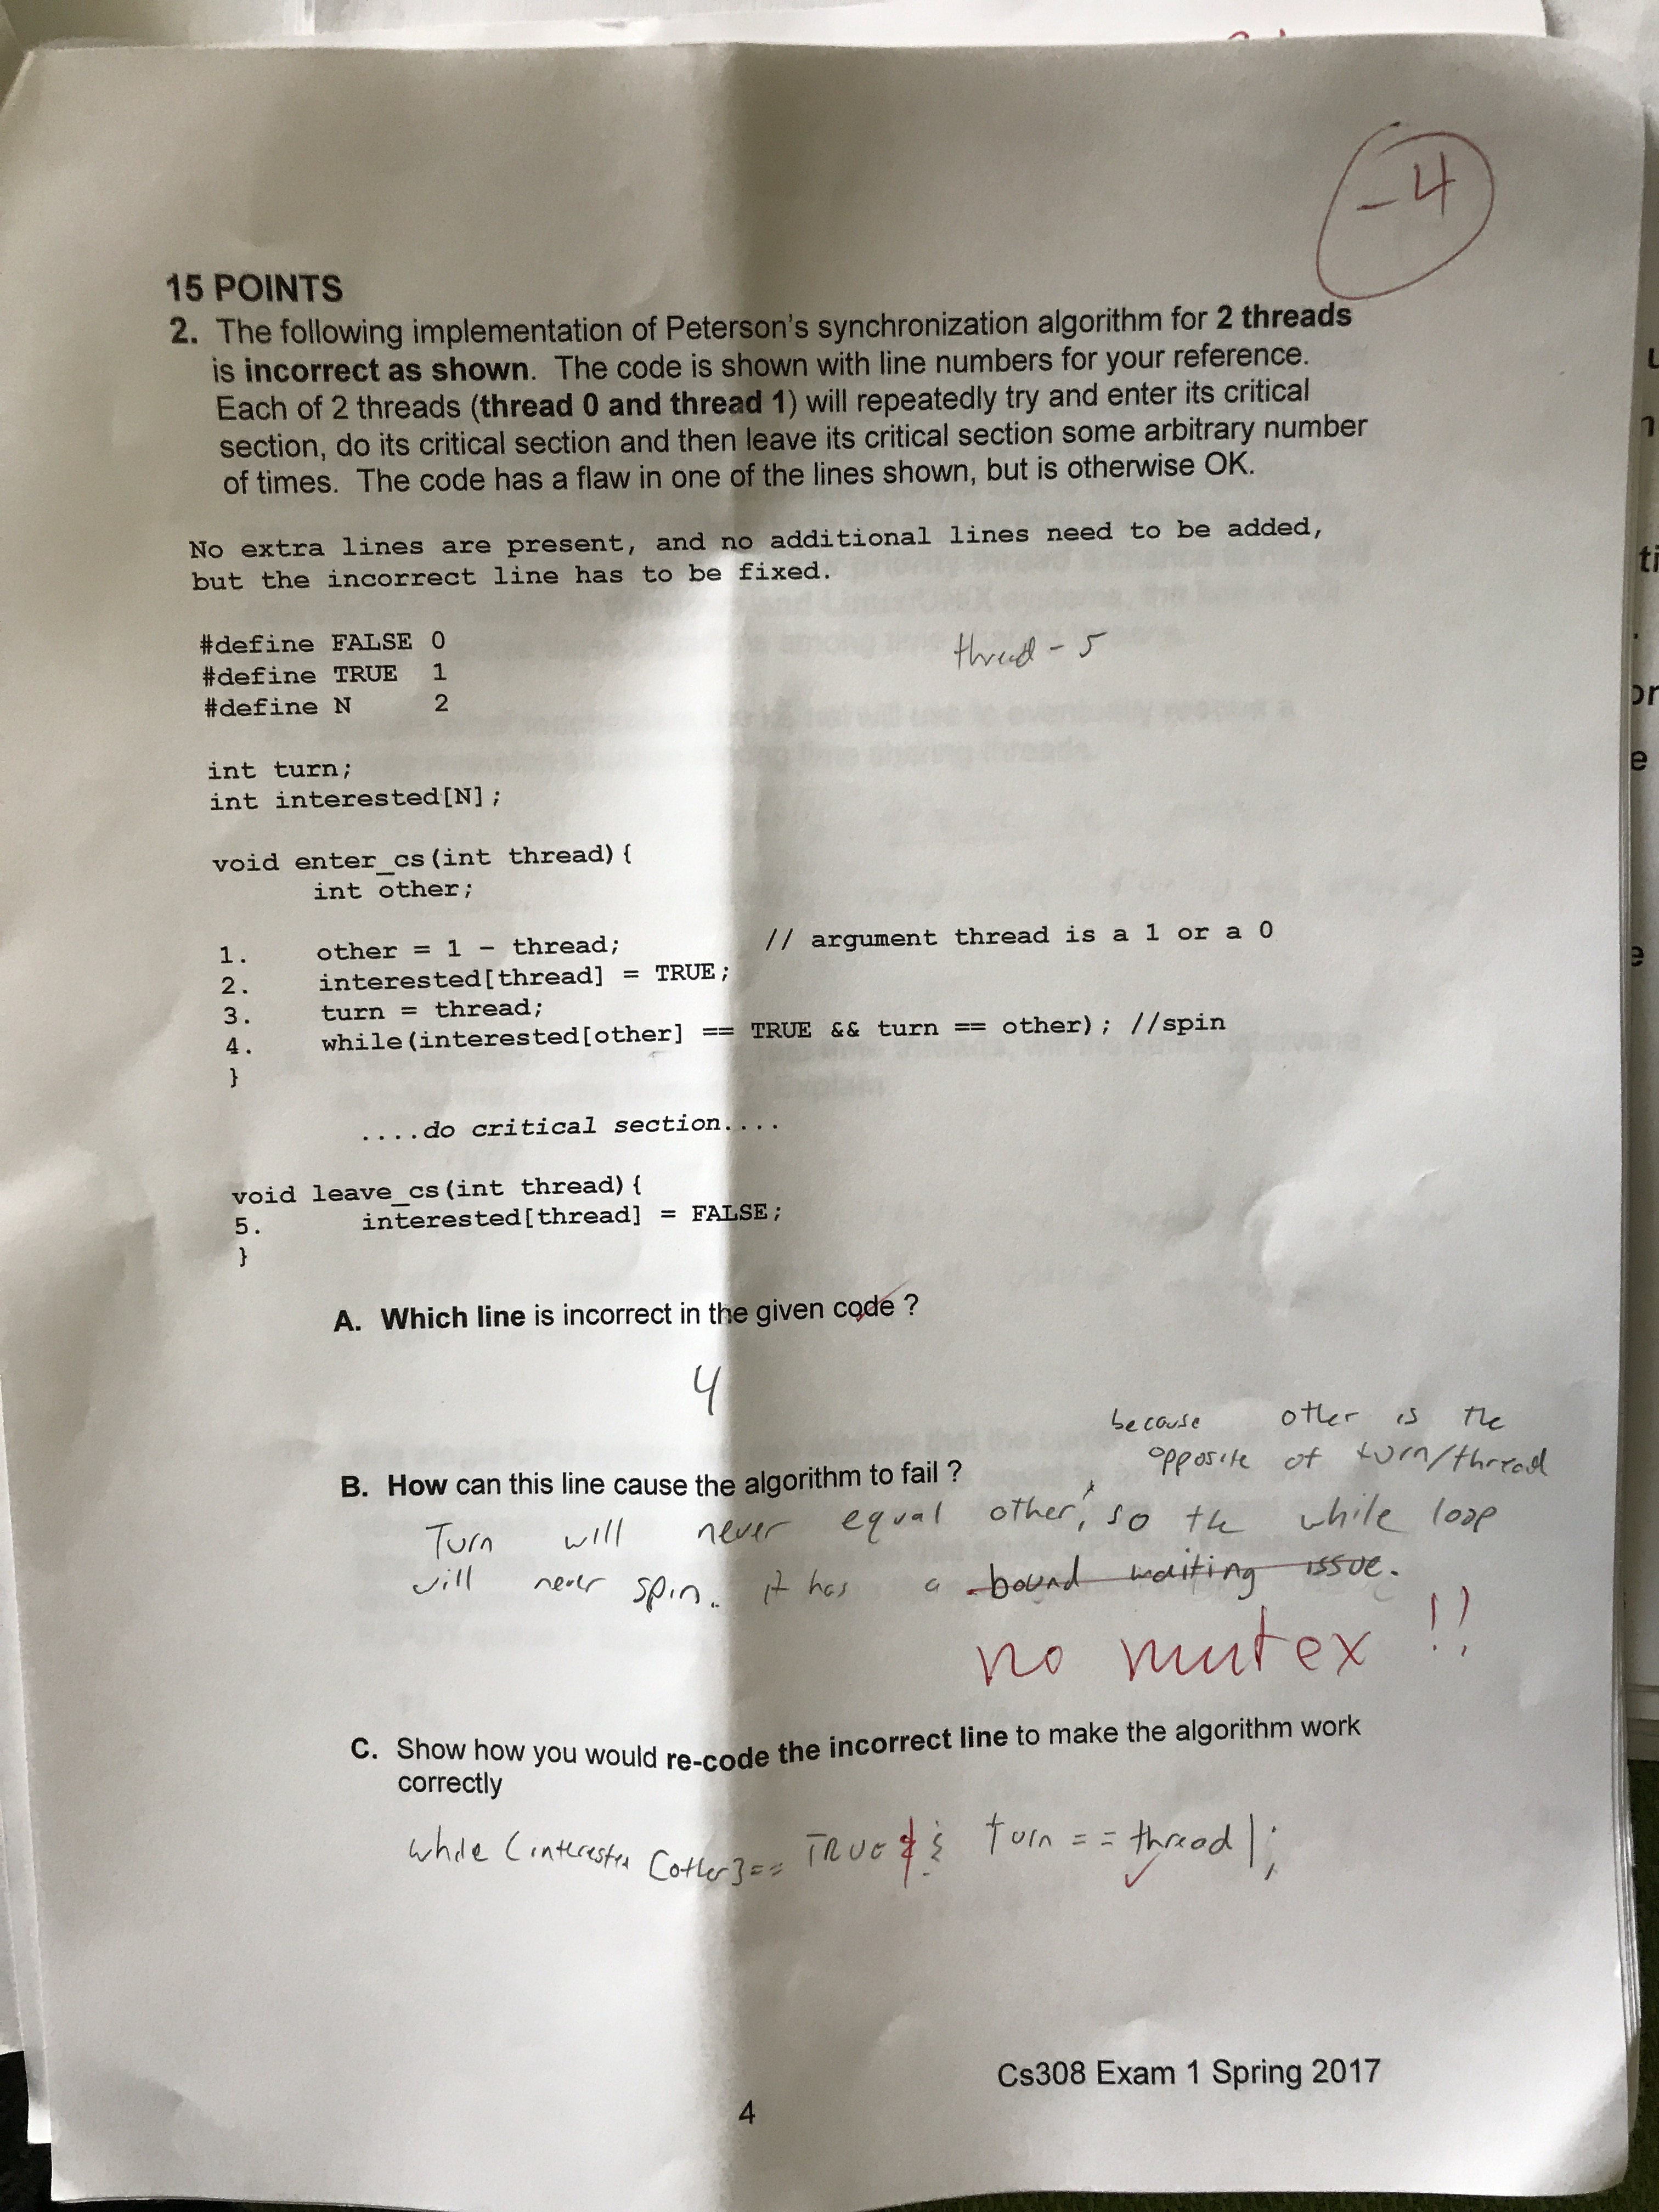 -4
15 POINTS
2. The following implementation of Peterson's synchronization algorithm for 2 threads
is incorrect as shown. The code is shown with line numbers for your reference.
Each of 2 threads (thread 0 and thread 1) will repeatedly try and enter its critical
section, do its critical section and then leave its critical section some arbitrary number
of times. The code has a flaw in one of the lines shown, but is otherwise OK.
No extra lines are present, and no additional lines need to be added,
but the incorrect line has to be fixed.
#define FALSE 0
thread - 5
#define TRUE 1
#define N 2
int turn;
int interested[N];
void enter_cs(int thread){
int other;
1. other = 1 - thread; // argument thread is a 1 or a 0
2. interested[thread] = TRUE;
3. turn = thread;
4. while(interested[other] == TRUE && turn == other); //spin
}
....do critical section....
void leave_cs(int thread){
5. interested[thread] = FALSE;
}
A. Which line is incorrect in the given code ?
4
because other is the
opposite of turn/thread
B. How can this line cause the algorithm to fail ?
Turn will never equal other, so the while loop
will never spin. it has a bound waiting issue.
no mutex !!
C. Show how you would re-code the incorrect line to make the algorithm work
correctly
while (interested [other]== TRUE && turn == thread);
Cs308 Exam 1 Spring 2017
4